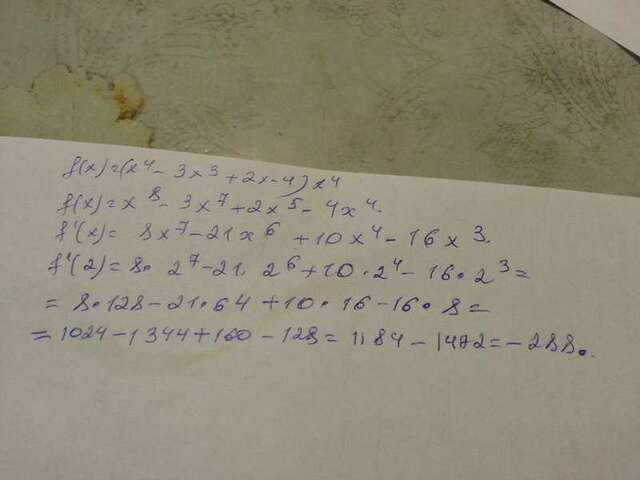 f(x)=(x⁴-3x³+2x-4)x⁴
f(x)=x⁸-3x⁷+2x⁵-4x⁴.
f'(x)=8x⁷-21x⁶+10x⁴-16x³.
f'(2)=8·2⁷-21·2⁶+10·2⁴-16·2³=
=8·128-21·64+10·16-16·8=
=1024-1344+160-128=1184-1472=-288.